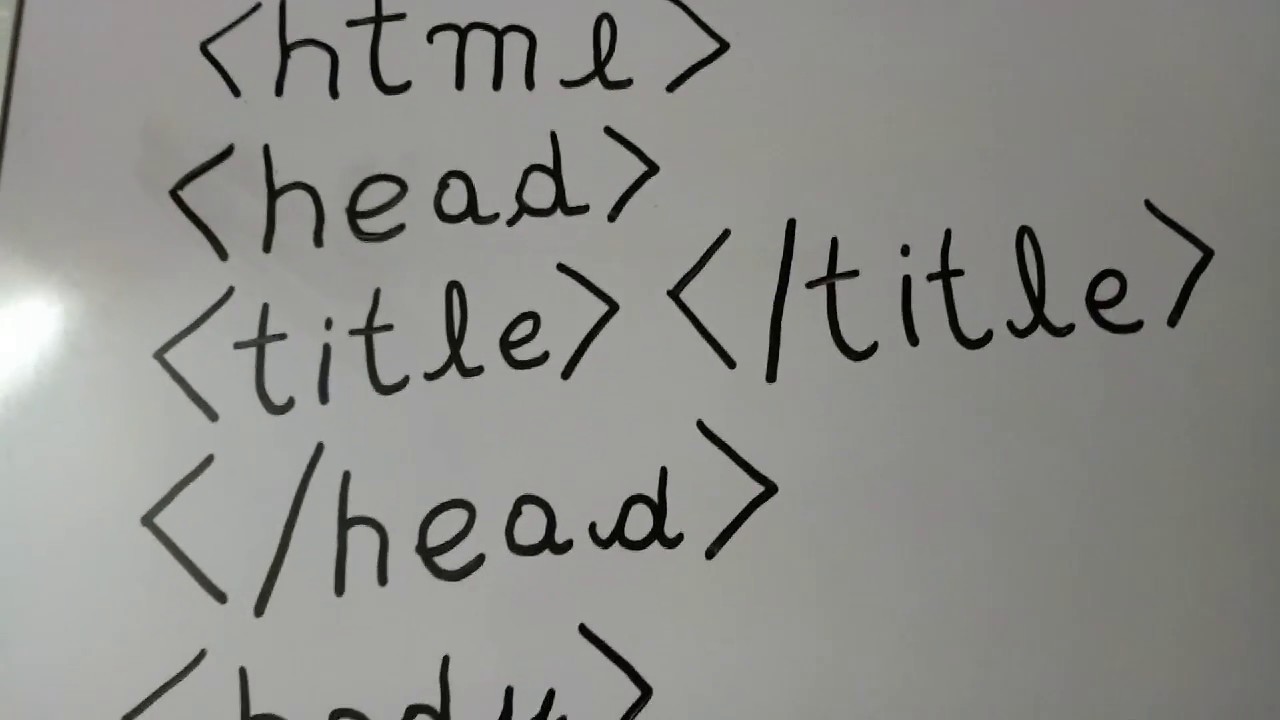 <html>
<head>
<title></title>
</head>
<body>